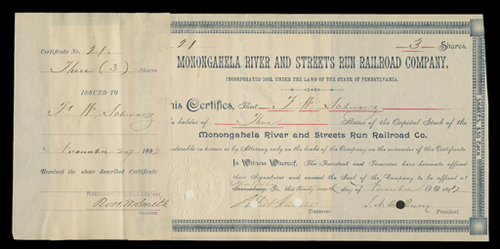 Certificate No. 21.
Three (3) Shares
ISSUED TO
F. W. Schwarz
November 29 1882
Received the above described Certificate
21 3 Shares.
MONONGAHELA RIVER AND STREETS RUN RAILROAD COMPANY.
INCORPORATED 1882, UNDER THE LAWS OF THE STATE OF PENNSYLVANIA.
This Certifies, That F. W. Schwarz
is holder of Three Shares of the Capital Stock of the
Monongahela River and Streets Run Railroad Co.
transferable in person or by Attorney only on the books of the Company on the surrender of this Certificate
In Witness Whereof, The President and Treasurer have hereunto affixed
their Signatures and caused the Seal of the Company to be affixed at
this twenty ninth day of November A.D. 1882
Treasurer. President.